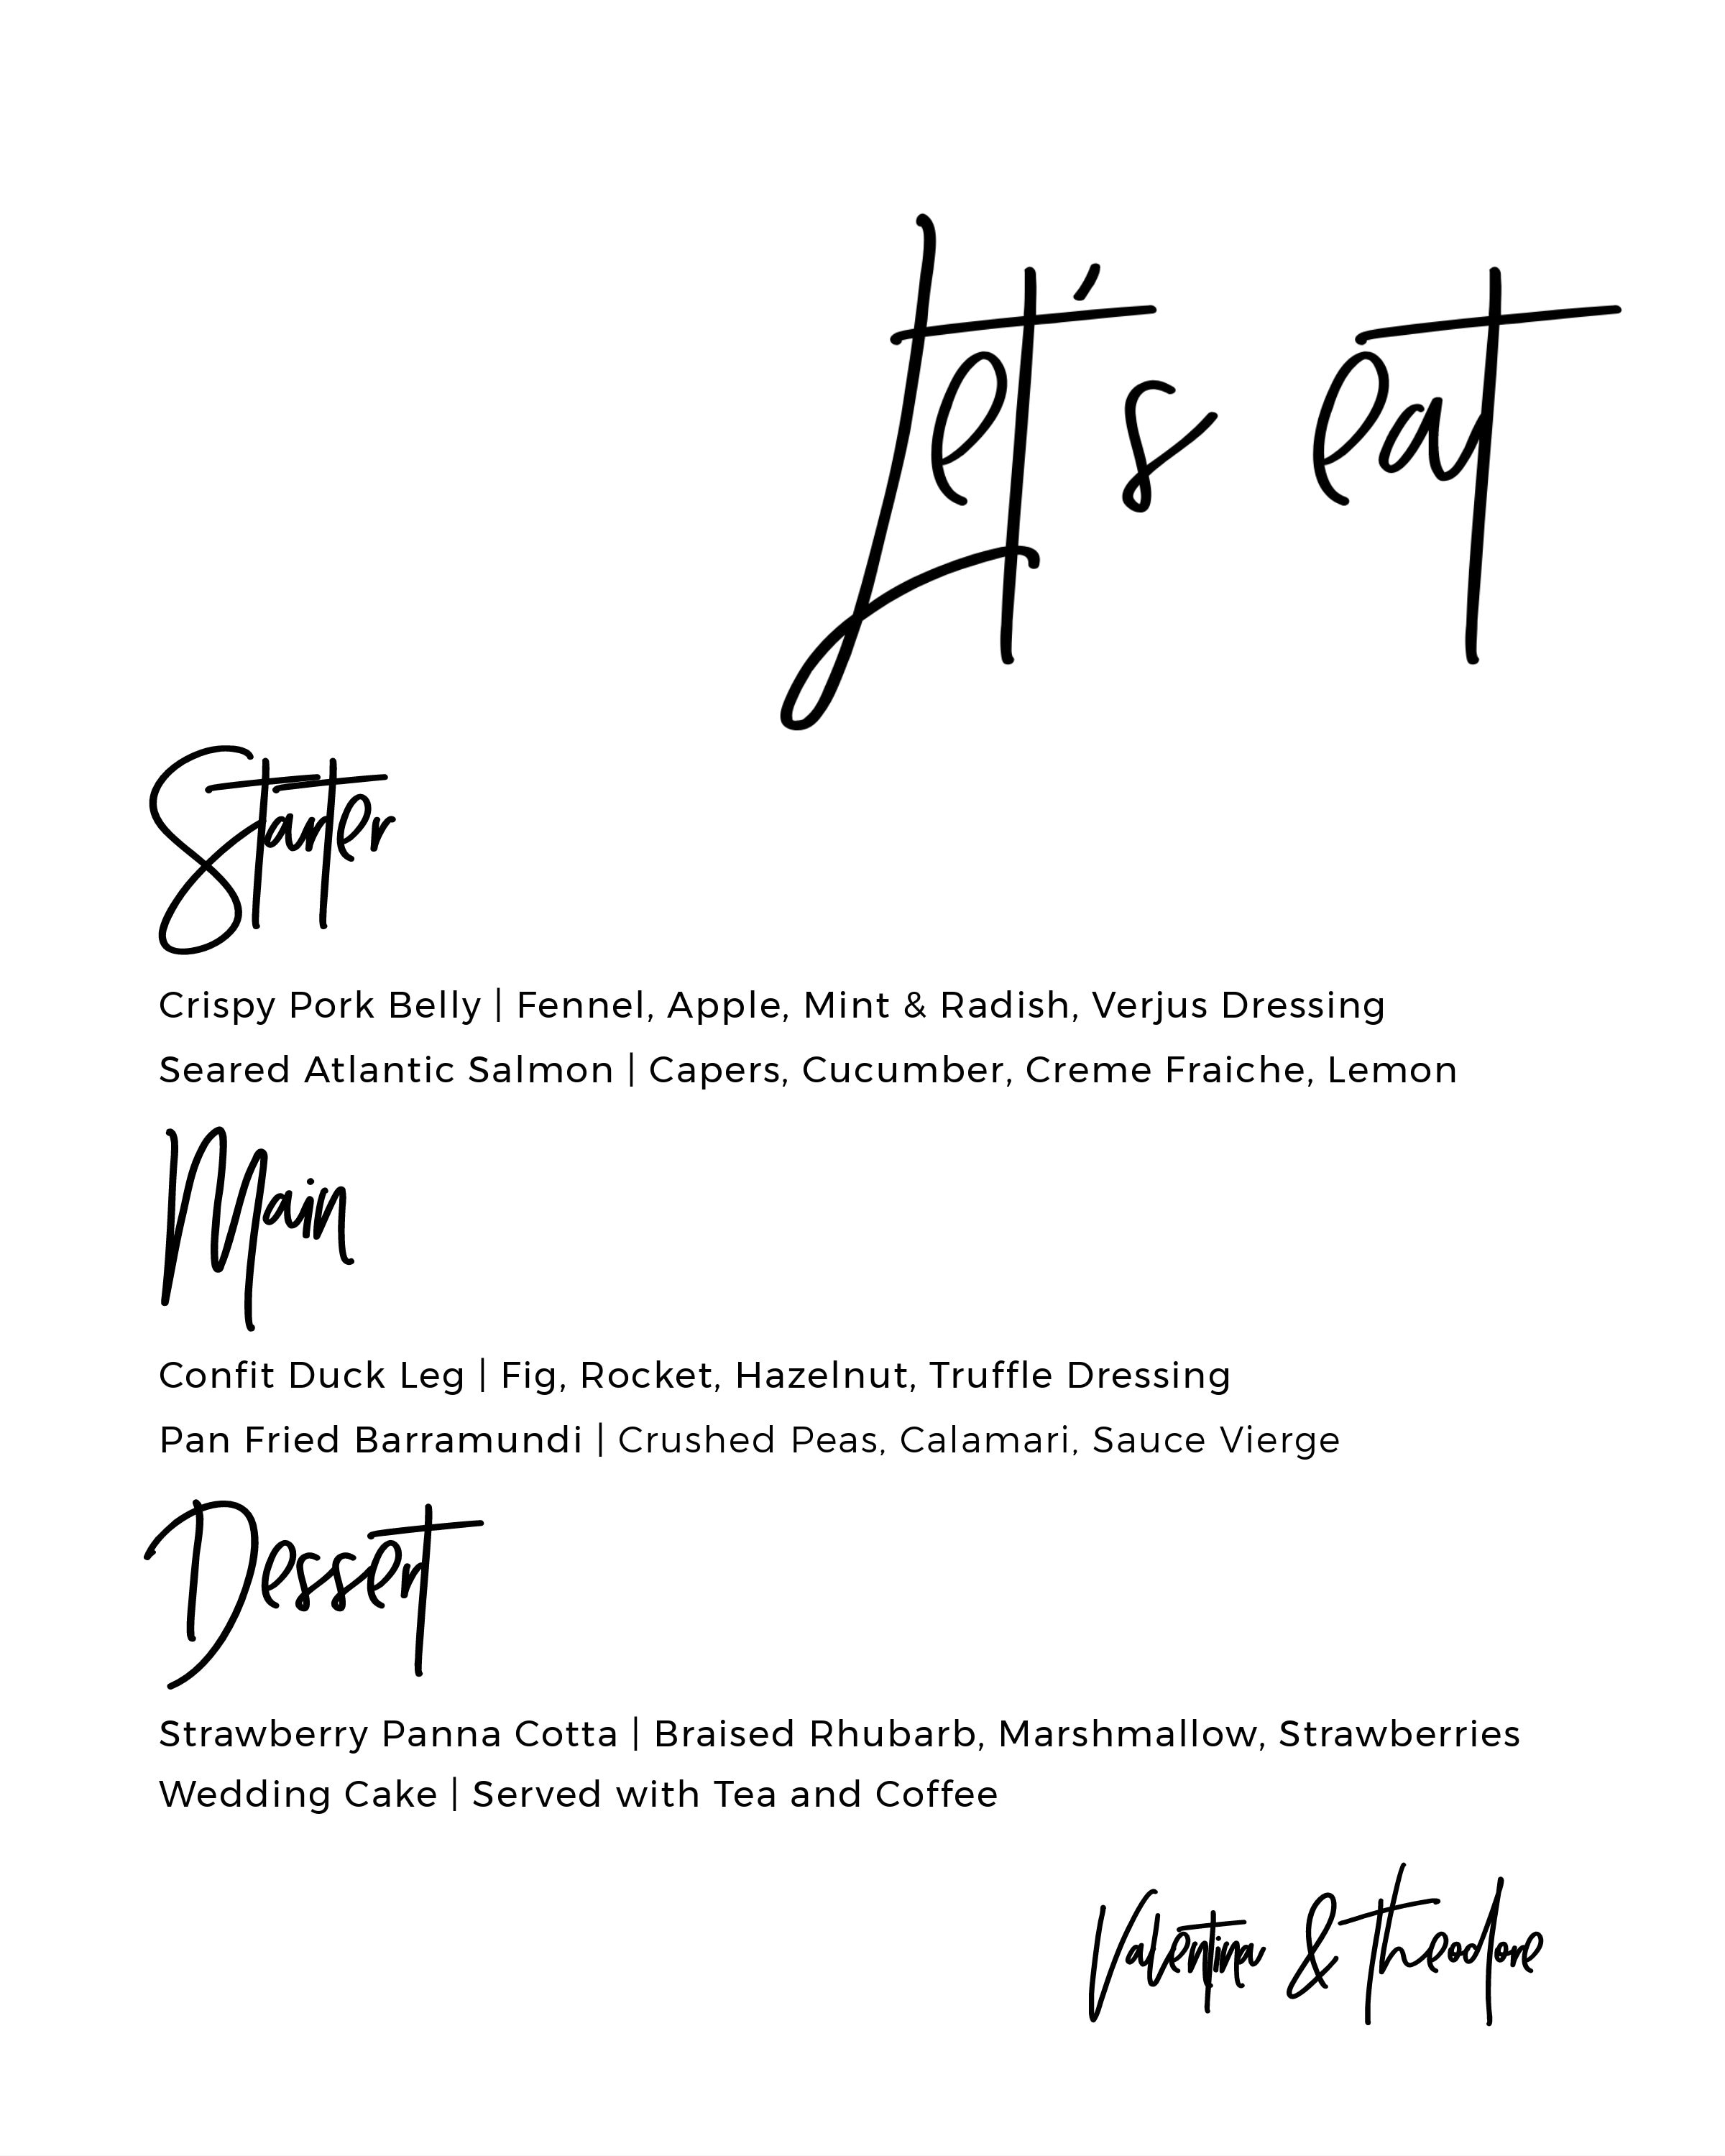 Let's eat
Starter
Crispy Pork Belly | Fennel, Apple, Mint & Radish, Verjus Dressing
Seared Atlantic Salmon | Capers, Cucumber, Creme Fraiche, Lemon
Main
Confit Duck Leg | Fig, Rocket, Hazelnut, Truffle Dressing
Pan Fried Barramundi | Crushed Peas, Calamari, Sauce Vierge
Dessert
Strawberry Panna Cotta | Braised Rhubarb, Marshmallow, Strawberries
Wedding Cake | Served with Tea and Coffee
Valentina & Theodore